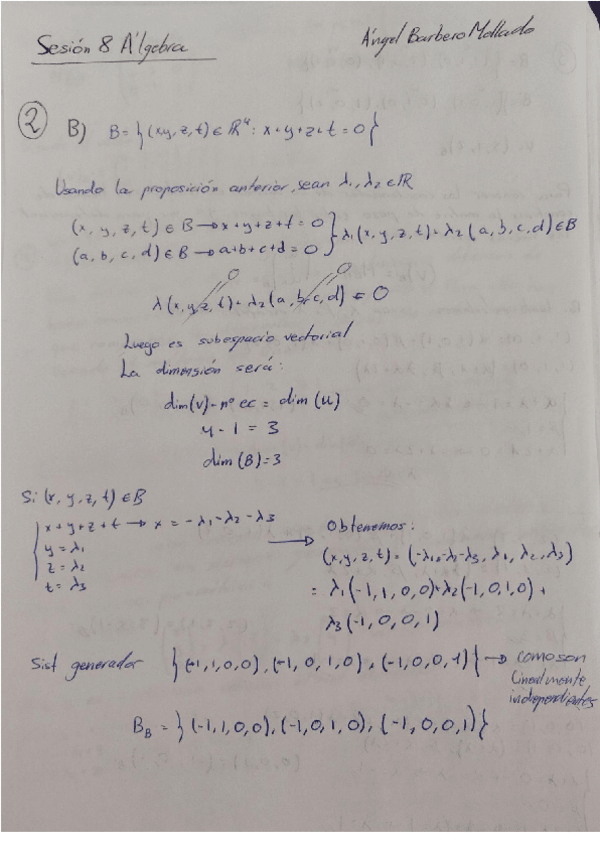 Sesión 8 Álgebra
Ángel Barbero Mollado
② B) B = {(x,y,z,t) ∈ ℝ⁴: x+y+z+t = 0}
Usando la proposición anterior, sean λ₁, λ₂ ∈ ℝ
(x, y, z, t) ∈ B → x+y+z+t = 0
(a, b, c, d) ∈ B → a+b+c+d = 0 } λ₁(x,y,z,t) + λ₂(a,b,c,d) ∈ B
0 0
λ(x,y,z,t) + λ₂(a,b,c,d) = 0
Luego es subespacio vectorial
La dimensión será:
dim(V) - nº ec = dim(U)
4 - 1 = 3
dim(B) = 3
Si (x, y, z, t) ∈ B
x+y+z+t → x = -λ₁-λ₂-λ₃
y = λ₁
z = λ₂
t = λ₃
→ Obtenemos:
(x,y,z,t) = (-λ₁-λ₂-λ₃, λ₁, λ₂, λ₃)
= λ₁(-1,1,0,0) + λ₂(-1,0,1,0) +
λ₃(-1,0,0,1)
Sist generador {(-1,1,0,0), (-1,0,1,0), (-1,0,0,-1)} → como son
linealmente
independientes
B_B = {(-1,1,0,0), (-1,0,1,0), (-1,0,0,1)}